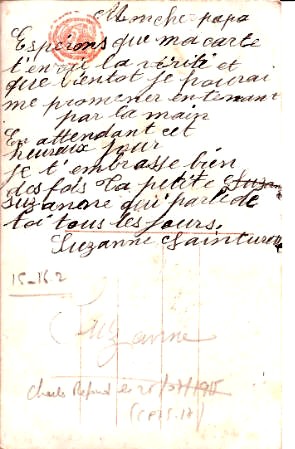 Mon cher papa
Espérons que ma carte
t'envoi la vérité et
que bientot je pourai
me promener en tenant
par la main
En attendant cet
heureux jour
je t'embrasse bien
des fois ta petite Suzan
Suzanne qui parle de
toi tous les jours.
Suzanne
15-16.2
Suzanne
Charles le 28/07/1915